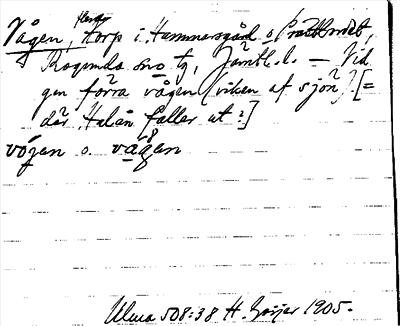 Vågen, torp i Hammersgård o Prästbordet,
Ragunda sn o tg, Jämtl. l. — Vid
gen förra vågen (viken af sjön). [=
där Halån faller ut?]
vógen o. vågen
Ulma 508:38 H. Geijer 1905.